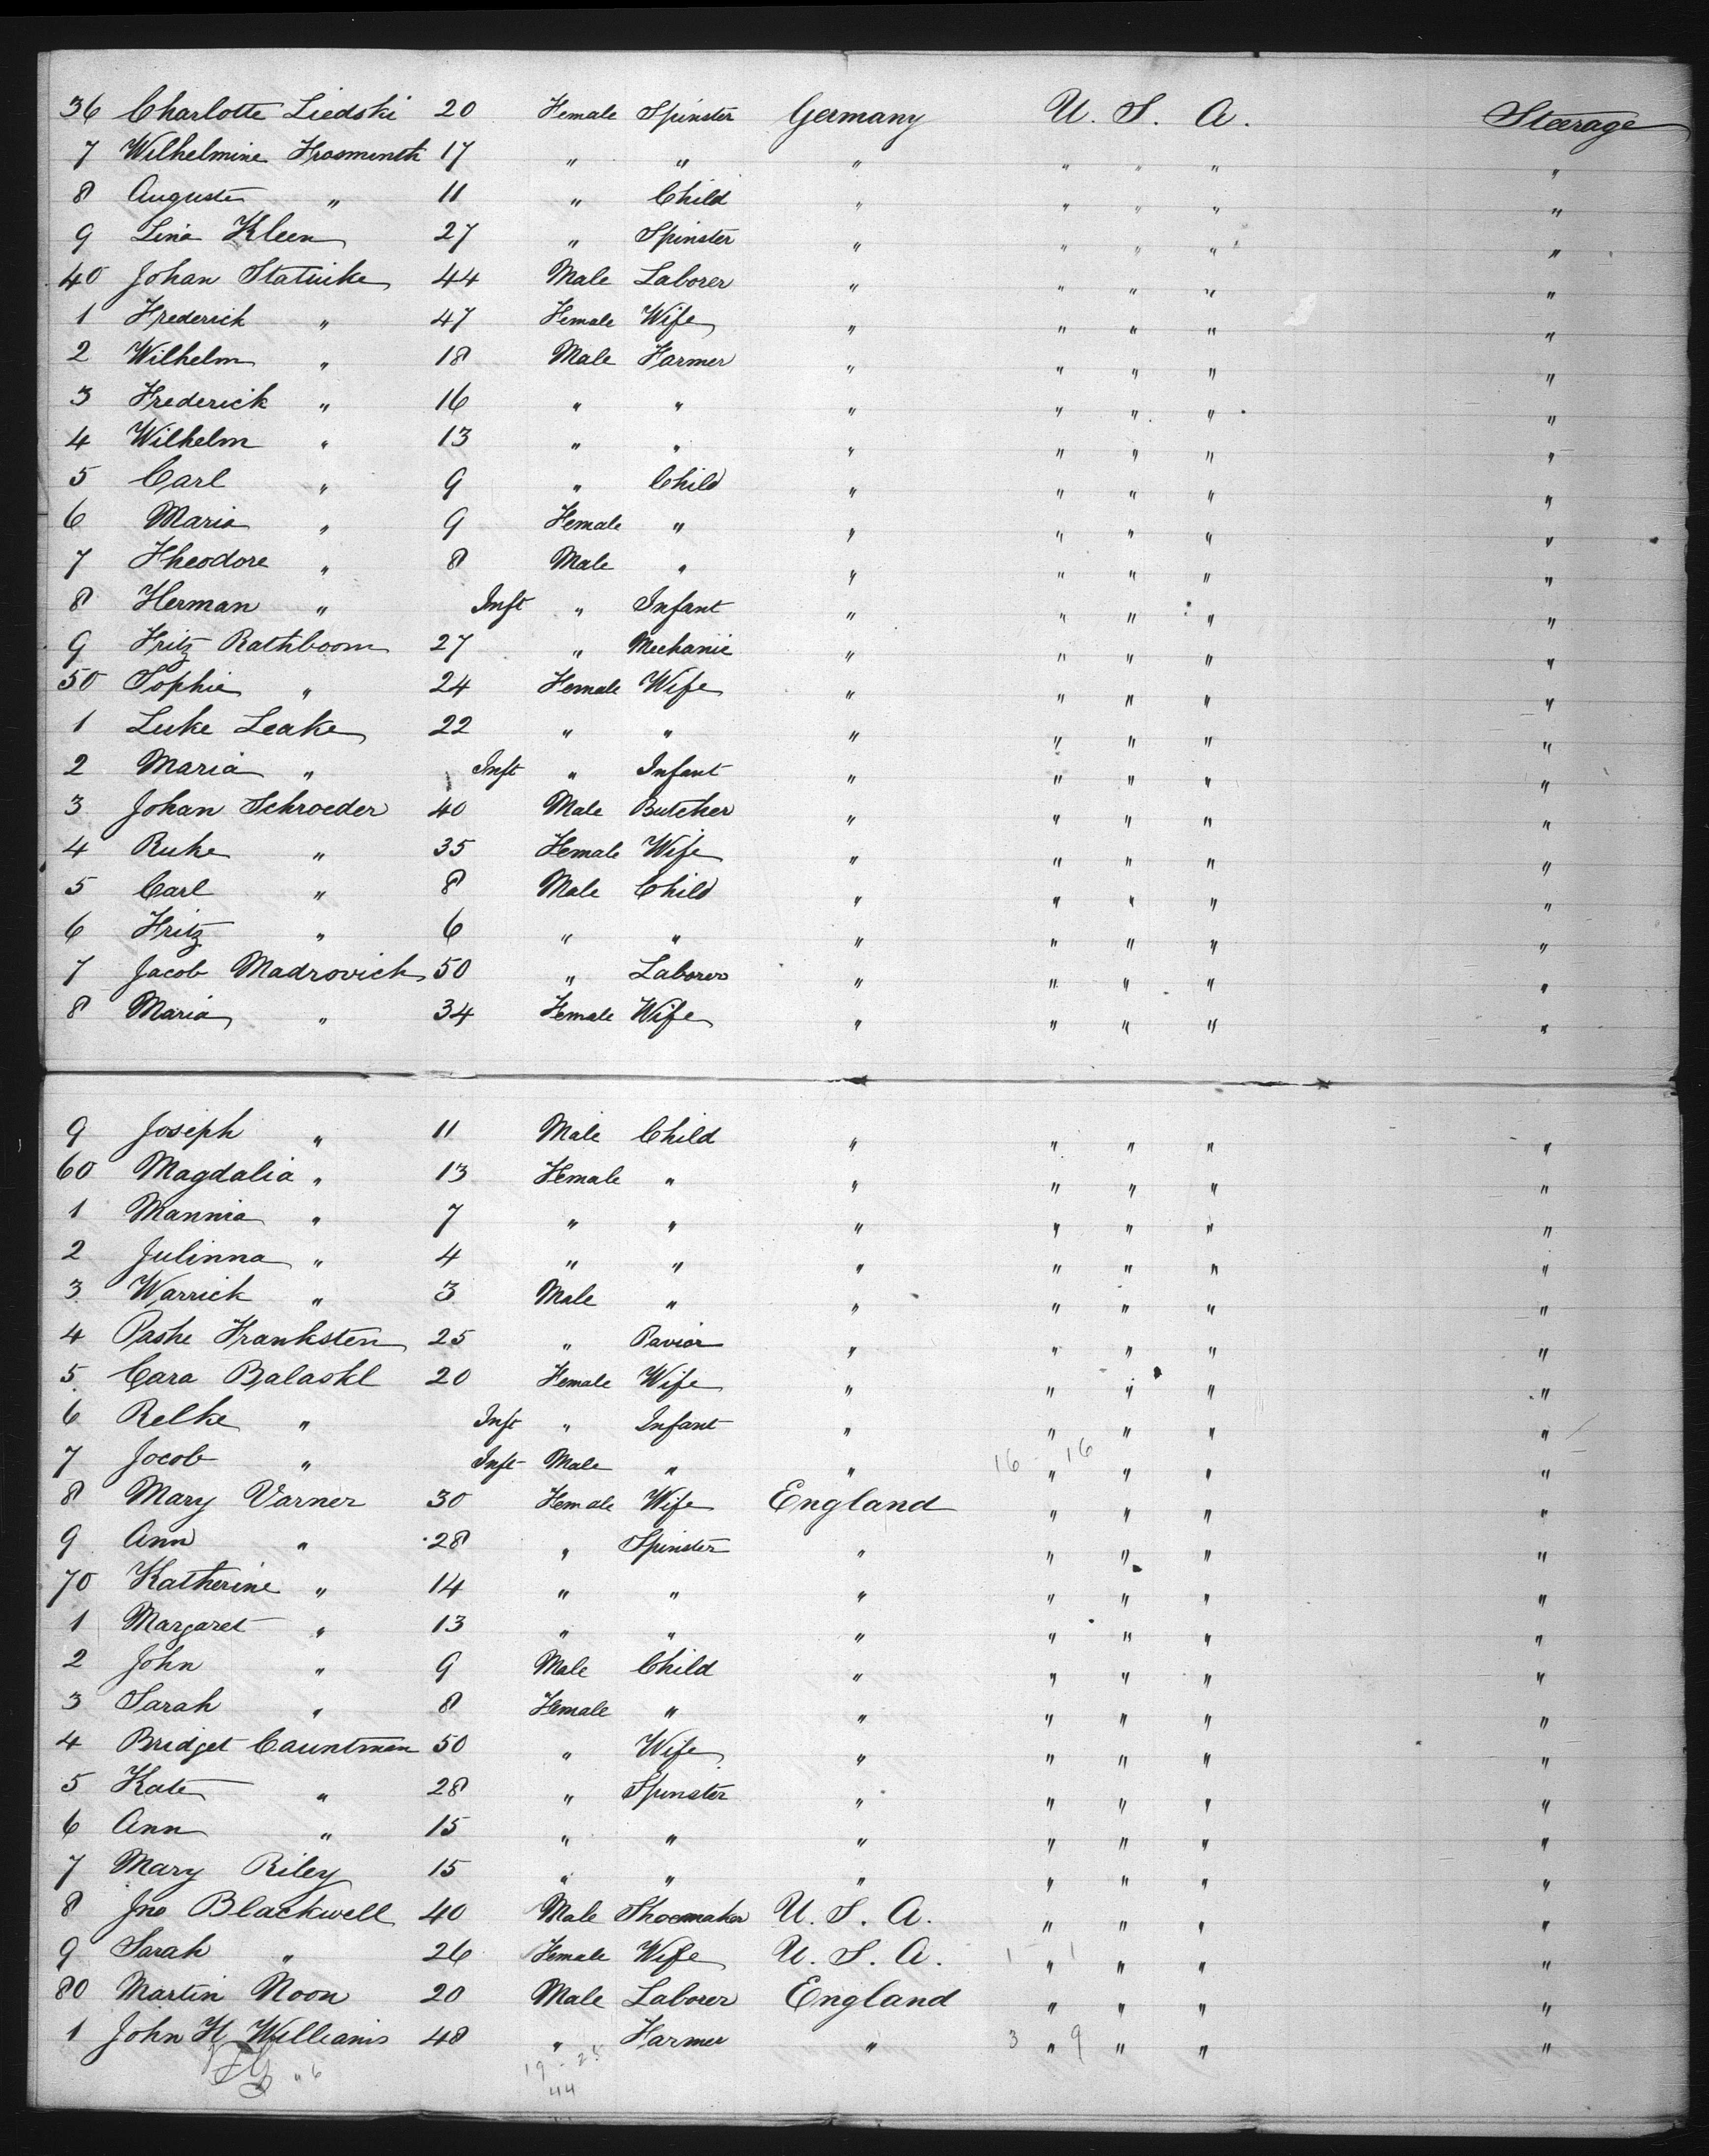 36 Charlotte Liedski 20 Female Spinster Germany U. S. A. Steerage
7 Wilhelmine Frosmenth 17 " " " " " " "
8 Auguste " 11 " Child " " " " "
9 Lina Kleen 27 " Spinster " " " " "
40 Johan Statuike 44 Male Laborer " " " " "
1 Frederick " 47 Female Wife " " " " "
2 Wilhelm " 18 Male Farmer " " " " "
3 Frederick " 16 " " " " " " "
4 Wilhelm " 13 " " " " " " "
5 Carl " 9 " Child " " " " "
6 Maria " 9 Female " " " " " "
7 Theodore " 8 Male " " " " " "
8 Herman " Inft " Infant " " " " "
9 Fritz Rathboom 27 " Mechanic " " " " "
50 Sophie " 24 Female Wife " " " " "
1 Luke Leake 22 " " " " " " "
2 Maria " Inft " Infant " " " " "
3 Johan Schroeder 40 Male Butcher " " " " "
4 Ruke " 35 Female Wife " " " " "
5 Carl " 8 Male Child " " " " "
6 Fritz " 6 " " " " " " "
7 Jacob Madrovich 50 " Laborer " " " " "
8 Maria " 34 Female Wife " " " " "
9 Joseph " 11 Male Child " " " " "
60 Magdalia " 13 Female " " " " " "
1 Mannia " 7 " " " " " " "
2 Julinna " 4 " " " " " " "
3 Warrick " 3 Male " " " " " "
4 Pashe Franksten 25 " Pavior " " " " "
5 Cara Balaskl 20 Female Wife " " " " "
6 Relke " Inft " Infant " " " " "
7 Jocob " Inft Male " " 16 " 16 " " "
8 Mary Varner 30 Female Wife England " " " "
9 Ann " 28 " Spinster " " " " "
70 Katherine " 14 " " " " " " "
1 Margaret " 13 " " " " " " "
2 John " 9 Male Child " " " " "
3 Sarah " 8 Female " " " " " "
4 Bridget Cauntman 50 " Wife " " " " "
5 Kate " 28 " Spinster " " " " "
6 Ann " 15 " " " " " " "
7 Mary Riley 15 " " " " " " "
8 Jno Blackwell 40 Male Shoemaker U. S. A. " " " "
9 Sarah " 26 Female Wife U. S. A. 1 " 1 " " "
80 Martin Noon 20 Male Laborer England " " " "
1 John H Williams 48 " Farmer " 3 " 9 " " "
19 - 25
44